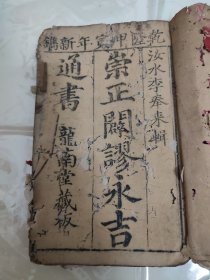 乾隆甲寅年新鐫
汝水李奉來輯
崇正闢謬永吉
通書 龍南堂藏板